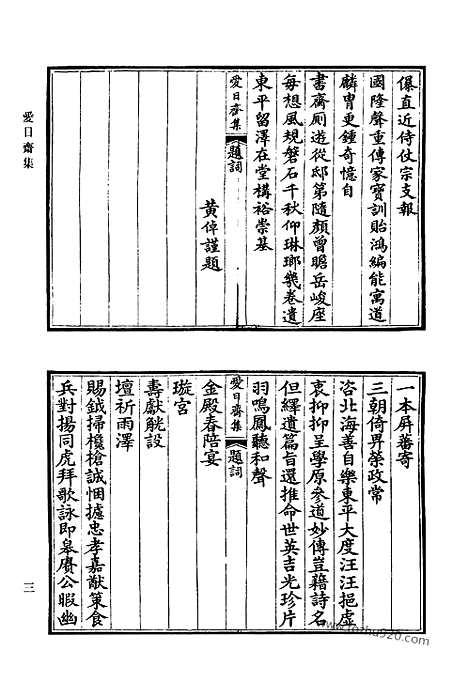 愛日齋集
儤直近侍仗宗支報
國隆聲重傳家寶訓貽鴻編能寓道
麟胄更鍾奇憶自
書齋厠遊從邸第隨顏曾瞻岳峻座
每想風規磐石千秋仰琳瑯幾卷遺
愛日齋集 題詞
東平留澤在堂構裕崇基
黃倬謹題
一本屏藩寄
三朝倚畀榮政常
咨北海善自樂東平大度汪汪挹虛
衷抑抑呈學原參道妙傳豈藉詩名
但繹遺篇旨還推命世英吉光珍片
羽鳴鳳聽和聲
愛日齋集 題詞
金殿春陪宴
璇宮
壽獻觥設
壇祈雨澤
賜鉞掃欃槍誠悃攄忠孝嘉猷策食
兵對揚同虎拜歌詠即皋賡公暇幽
三